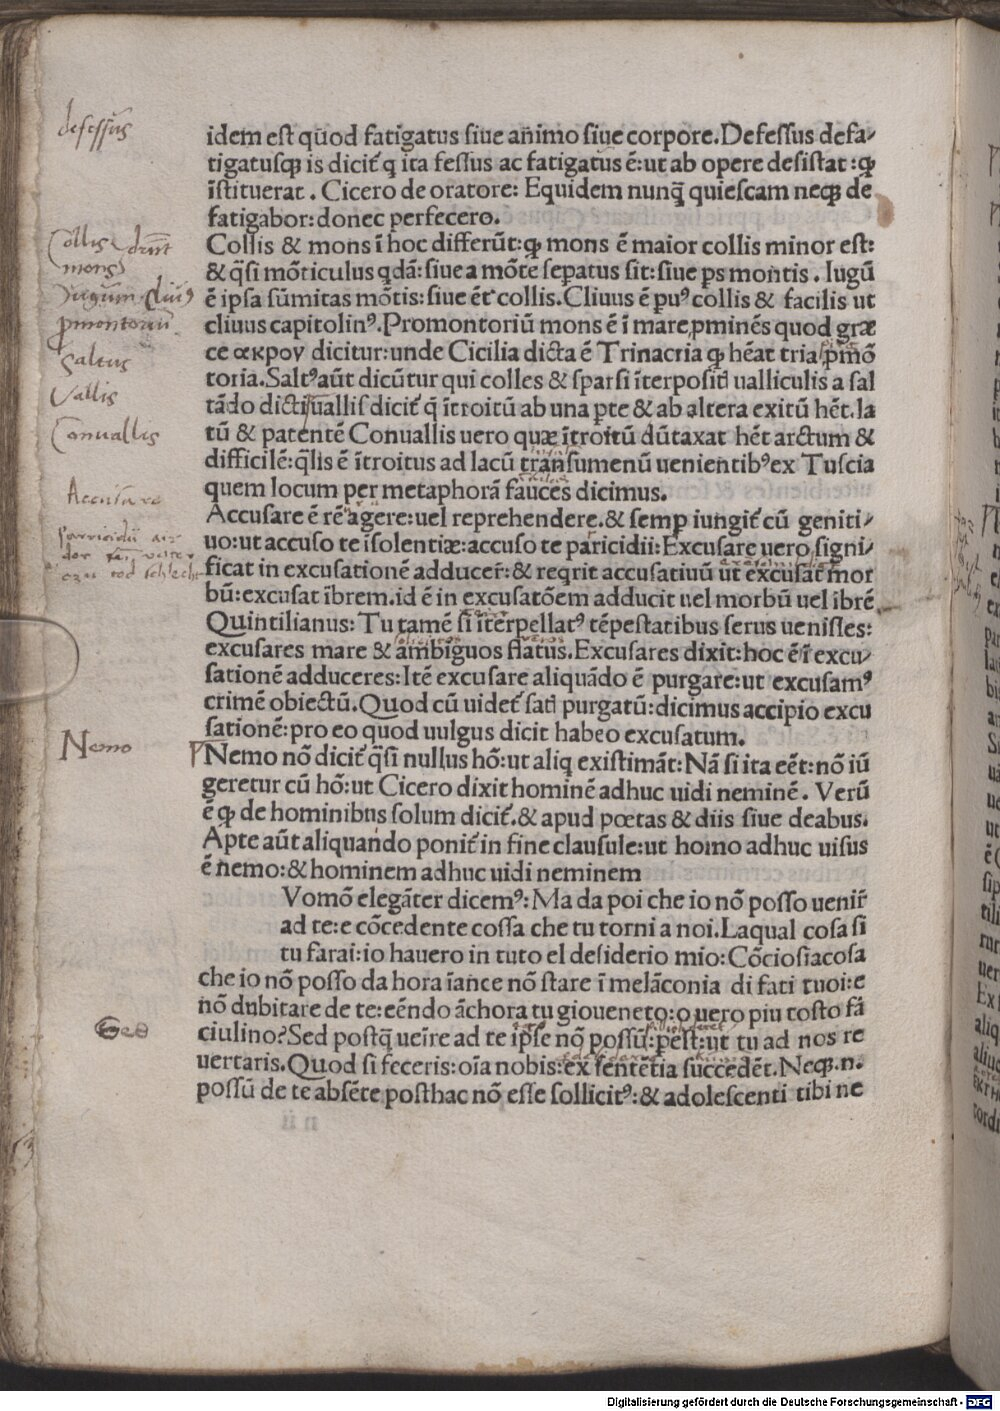 defessus
idem est quod fatigatus siue animo siue corpore. Defessus defa-
tigatusqꝫ is dicit᷑ q ita fessus ac fatigatus ē: ut ab opere desistat: ꝙ
īstituerat. Cicero de oratore: Equidem nunq̄ quiescam neqꝫ de
fatigabor: donec perfecero.
Collis
mons
Collis & mons ī hoc differūt: ꝙ mons ē maior collis minor est:
& q̄si mōticulus qdā: siue a mōte sepatus sit: siue ps montis. Iugū
Iugum Cliuꝰ
ē ipsa sūmitas mōtis: siue ēt collis. Cliuus ē puꝰ collis & facilis ut
promontoriū
cliuus capitolinꝰ. Promontoriū mons ē ī mare ꝓminēs quod græ
Saltus
ce ακρον dicitur: unde Cicilia dicta ē Trinacria ꝙ hēat tria ꝓmō
toria. Saltꝰ aūt dicūtur qui colles & sparsi īterpositi ualliculis a sal
Vallis
tādo dicti uallis dicit᷑ q̄ ītroitū ab una pte & ab altera exitū hēt. la
Conuallis
tū & patentē Conuallis uero quæ ītroitū dūtaxat hēt arctum &
difficilē: q̄lis ē ītroitus ad lacū transumenū uenientibꝰ ex Tuscia
quem locum per metaphorā fauces dicimus.
Accusare
Accusare ē rē agere: uel reprehendere. & semp iungit᷑ cū geniti-
uo: ut accuso te īsolentiæ: accuso te paricidii: Excusare uero signi-
ficat in excusationē adducer̄: & reqrit accusatiuū ut excusat mor
bū: excusat ībrem. id ē in excusatōem adducit uel morbū uel ibrē
Quintilianus: Tu tamē si īterpellatꝰ tēpestatibus serus uenisses:
excusares mare & ambiguos flatus. Excusares dixit: hoc ē ī excu-
sationē adduceres: Itē excusare aliquādo ē purgare: ut excusamꝰ
crimē obiectū. Quod cū uidet᷑ sati purgatū: dicimus accipio excu
sationē: pro eo quod uulgus dicit habeo excusatum.
Nemo
Nemo nō dicit᷑ q̄si nullus hō: ut aliq existimāt: Nā si ita eēt: nō iū
geretur cū hō: ut Cicero dixit hominē adhuc uidi neminē. Verū
ē ꝙ de hominibns solum dicit᷑. & apud poetas & diis siue deabus.
Apte aūt aliquando ponit᷑ in fine clausule: ut homo adhuc uisus
ē nemo: & hominem adhuc uidi neminem
Vomō elegāter dicemꝰ: Ma da poi che io nō posso uenir̄
ad te: e cōcedente cossa che tu torni a noi. Laqual cosa si
tu farai: io hauero in tuto el desiderio mio: Cōciosiacosa
che io nō posso da hora īance nō stare ī melāconia di fati tuoi: e
nō dubitare de te: eēndo āchora tu gioueneto: o uero piu tosto fā
Sed
ciulino? Sed postq̄ ueīre ad te ipse nō possū: pest: ut tu ad nos re
uertaris. Quod si feceris: oīa nobis: ex sentētia succedēt. Neqꝫ .n.
possū de te absēte posthac nō esse sollicitꝰ: & adolescenti tibi ne
Digitalisierung gefördert durch die Deutsche Forschungsgemeinschaft - DFG